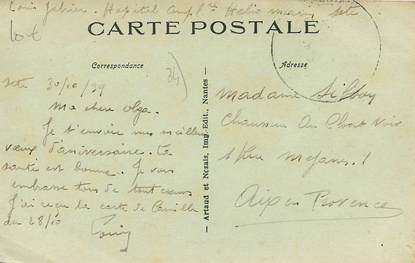 Louis Hôpital Helio marin Sète
CARTE POSTALE
Correspondance
Adresse
Sète 30/10/39
Ma chere Olga.
Je t'envoie mes meilleurs
vœux d'anniversaire. Ta
santé est bonne. Je vous
embrasse tous de tout cœur
J'ai reçu la carte de Camille
du 28/10
Louis
Artaud et Nozais, Imp.-Edit., Nantes
Madame
Chaussures Au Chat Noir
Rue Mejanes. 1
Aix en Provence